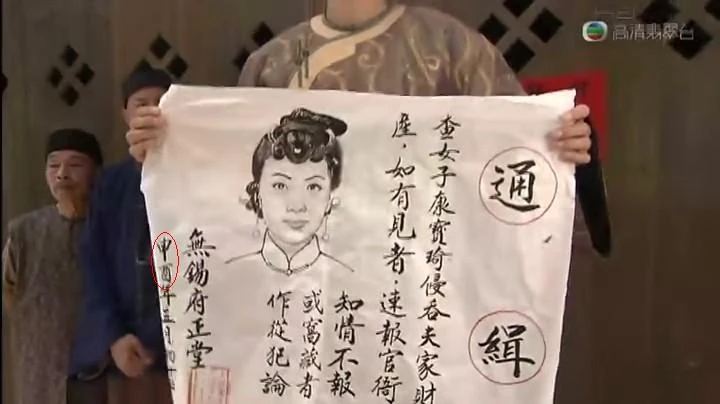 高清翡翠台
通緝
查女子康寶琦侵吞夫家財
產，如有見者，速報官衙
知情不報
或窩藏者
作從犯論
無錫府正堂
申酉年五月初